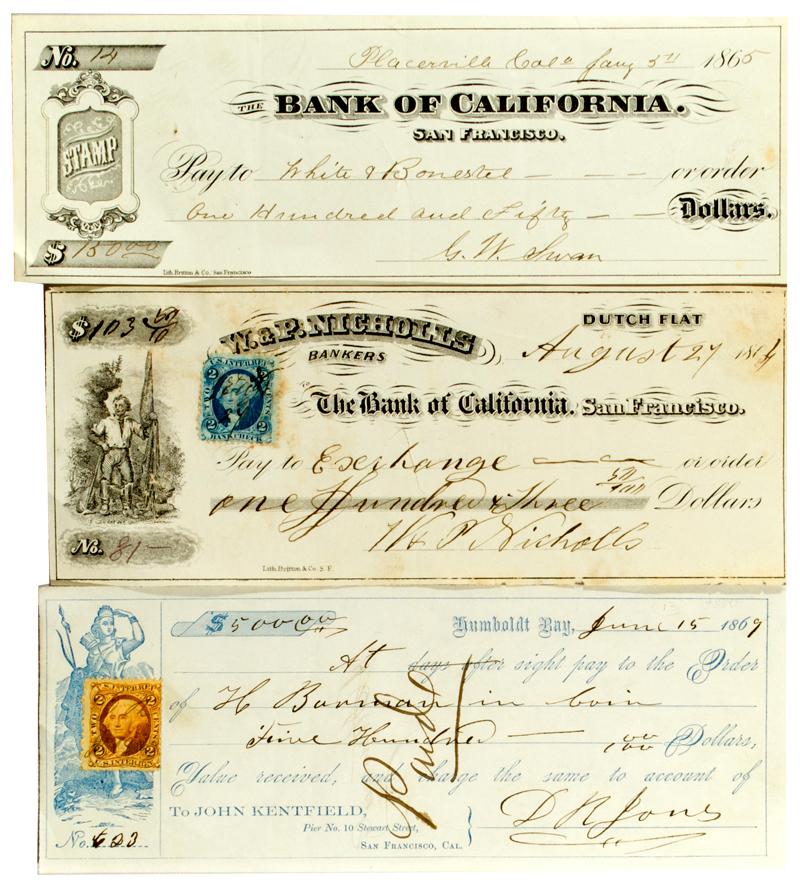 No. 14
Placerville Cala Jany 5th 1865
THE BANK OF CALIFORNIA.
SAN FRANCISCO.
STAMP
Pay to White & Bonestel or order
One Hundred and Fifty Dollars.
$ 150 00
G. W. Swan
Lith. Britton & Co. San Francisco
$ 103 50/10
W. & P. NICHOLLS
BANKERS
DUTCH FLAT
August 27 1864
U.S. INTER. REV.
TWO CENTS
2 2
BANK CHECK
The Bank of California. San Francisco.
Pay to Exchange or order
One Hundred & Three 50/100 Dollars
W & P Nicholls
No. 81
Lith. Britton & Co. S. F.
$ 500 00
Humboldt Bay, June 15 1869
At days after sight pay to the Order
of H Bowman in Coin
Five Hundred 00/100 Dollars,
Value received, and charge the same to account of
Paid
U.S. INTER. REV.
2 2
TWO CENTS
2 2
U.S. INTER. REV.
To JOHN KENTFIELD,
Pier No. 10 Stewart Street,
SAN FRANCISCO, CAL.
D R Jones
No.